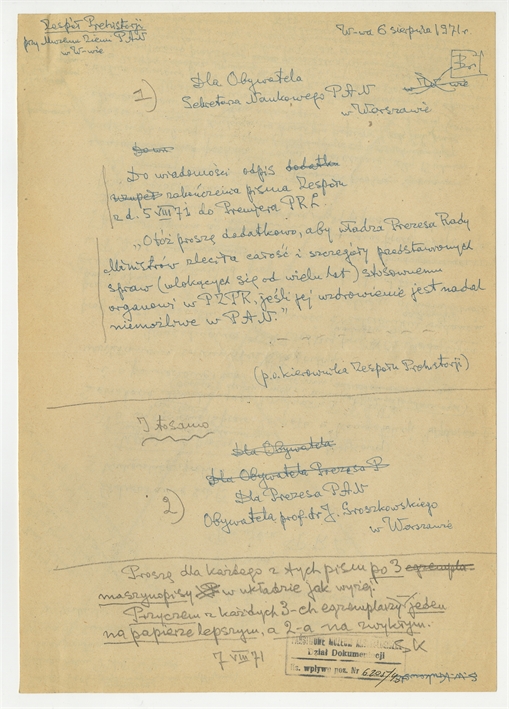 Zespół Prehistorji
przy Muzeum Ziemi PAN
w W-wie
W-wa 6 sierpnia 1971 r.
1)
Dla Obywatela
Sekretarza Naukowego PAN
w Warszawie
Do wiadomości odpis dodatku
zakończenia pisma Zespołu
z d. 5 VIII 71 do Premjera PRL:
„Otóż proszę dodatkowo, aby władza Prezesa Rady
Ministrów zleciła całość i szczegóły przedstawionych
spraw (wlokących się od wielu lat) stosownemu
organowi w PZPR, jeśli jej uzdrowienie jest nadal
niemożliwe w PAN."
(p.o. kierownika Zespołu Prehistorji)
I tosamo
Dla Obywatela
Dla Obywatela Prezesa P
2)
Dla Prezesa PAN
Obywatela prof. dr J. Groszkowskiego
w Warszawie
Proszę dla każdego z tych pism po 3 egzempla
maszynopisy w układzie jak wyżej.
Przyczem z każdych 3-ch egzemplarzy jeden
na papierze lepszym, a 2-a na zwykłym.
7 VIII 71
SK
PAŃSTWOWE MUZEUM
Dział Dokumentacji
Ks. wpływu poz. Nr